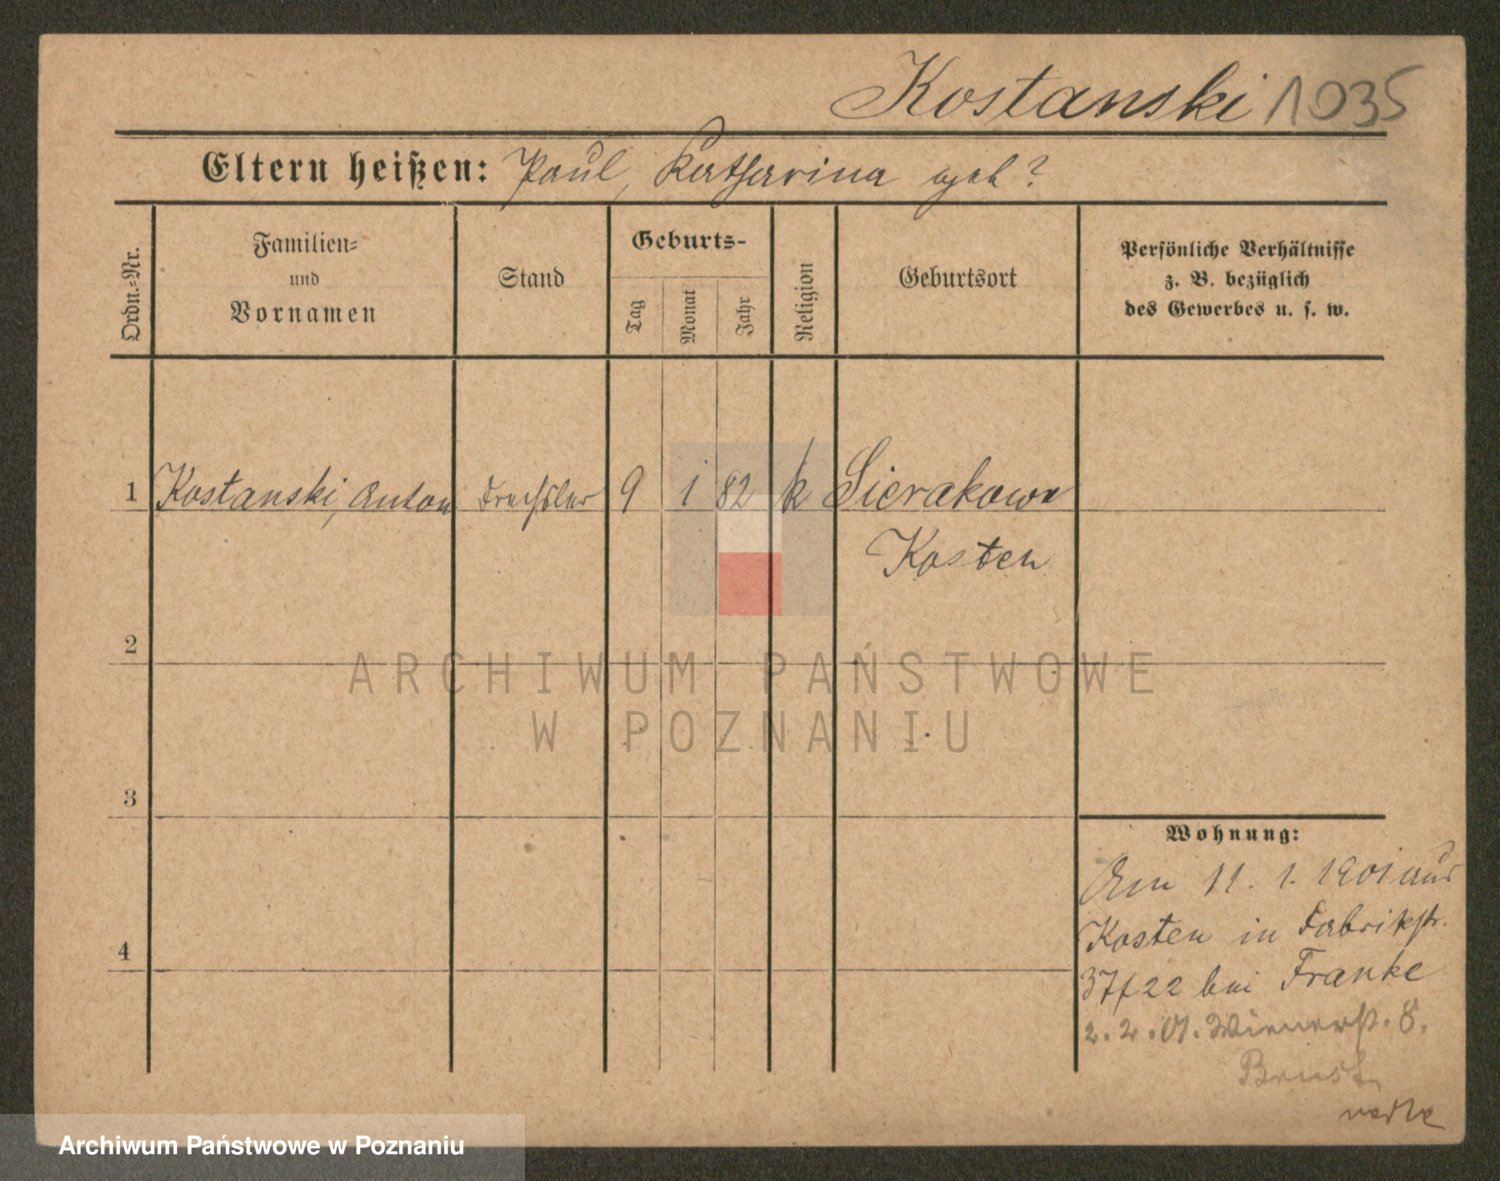 Kostanski 1035
Eltern heißen: Paul, Katharina geb?
Ordn.-Nr.
Familien-
und
Vornamen
Stand
Geburts-
Tag
Monat
Jahr
Religion
Geburtsort
Persönliche Verhältnisse
z. B. bezüglich
des Gewerbes u. s. w.
1 Kostanski, Anton Drechsler 9 1 82 k Sierakowo
Kosten
2
ARCHIWUM PAŃSTWOWE
W POZNANIU
3
Wohnung:
Am 11. 1. 1901 aus
Kosten in Fabrikstr.
37/22 bei Franke
4
2. 2. 01. Wienerst. 8.
Archiwum Państwowe w Poznaniu